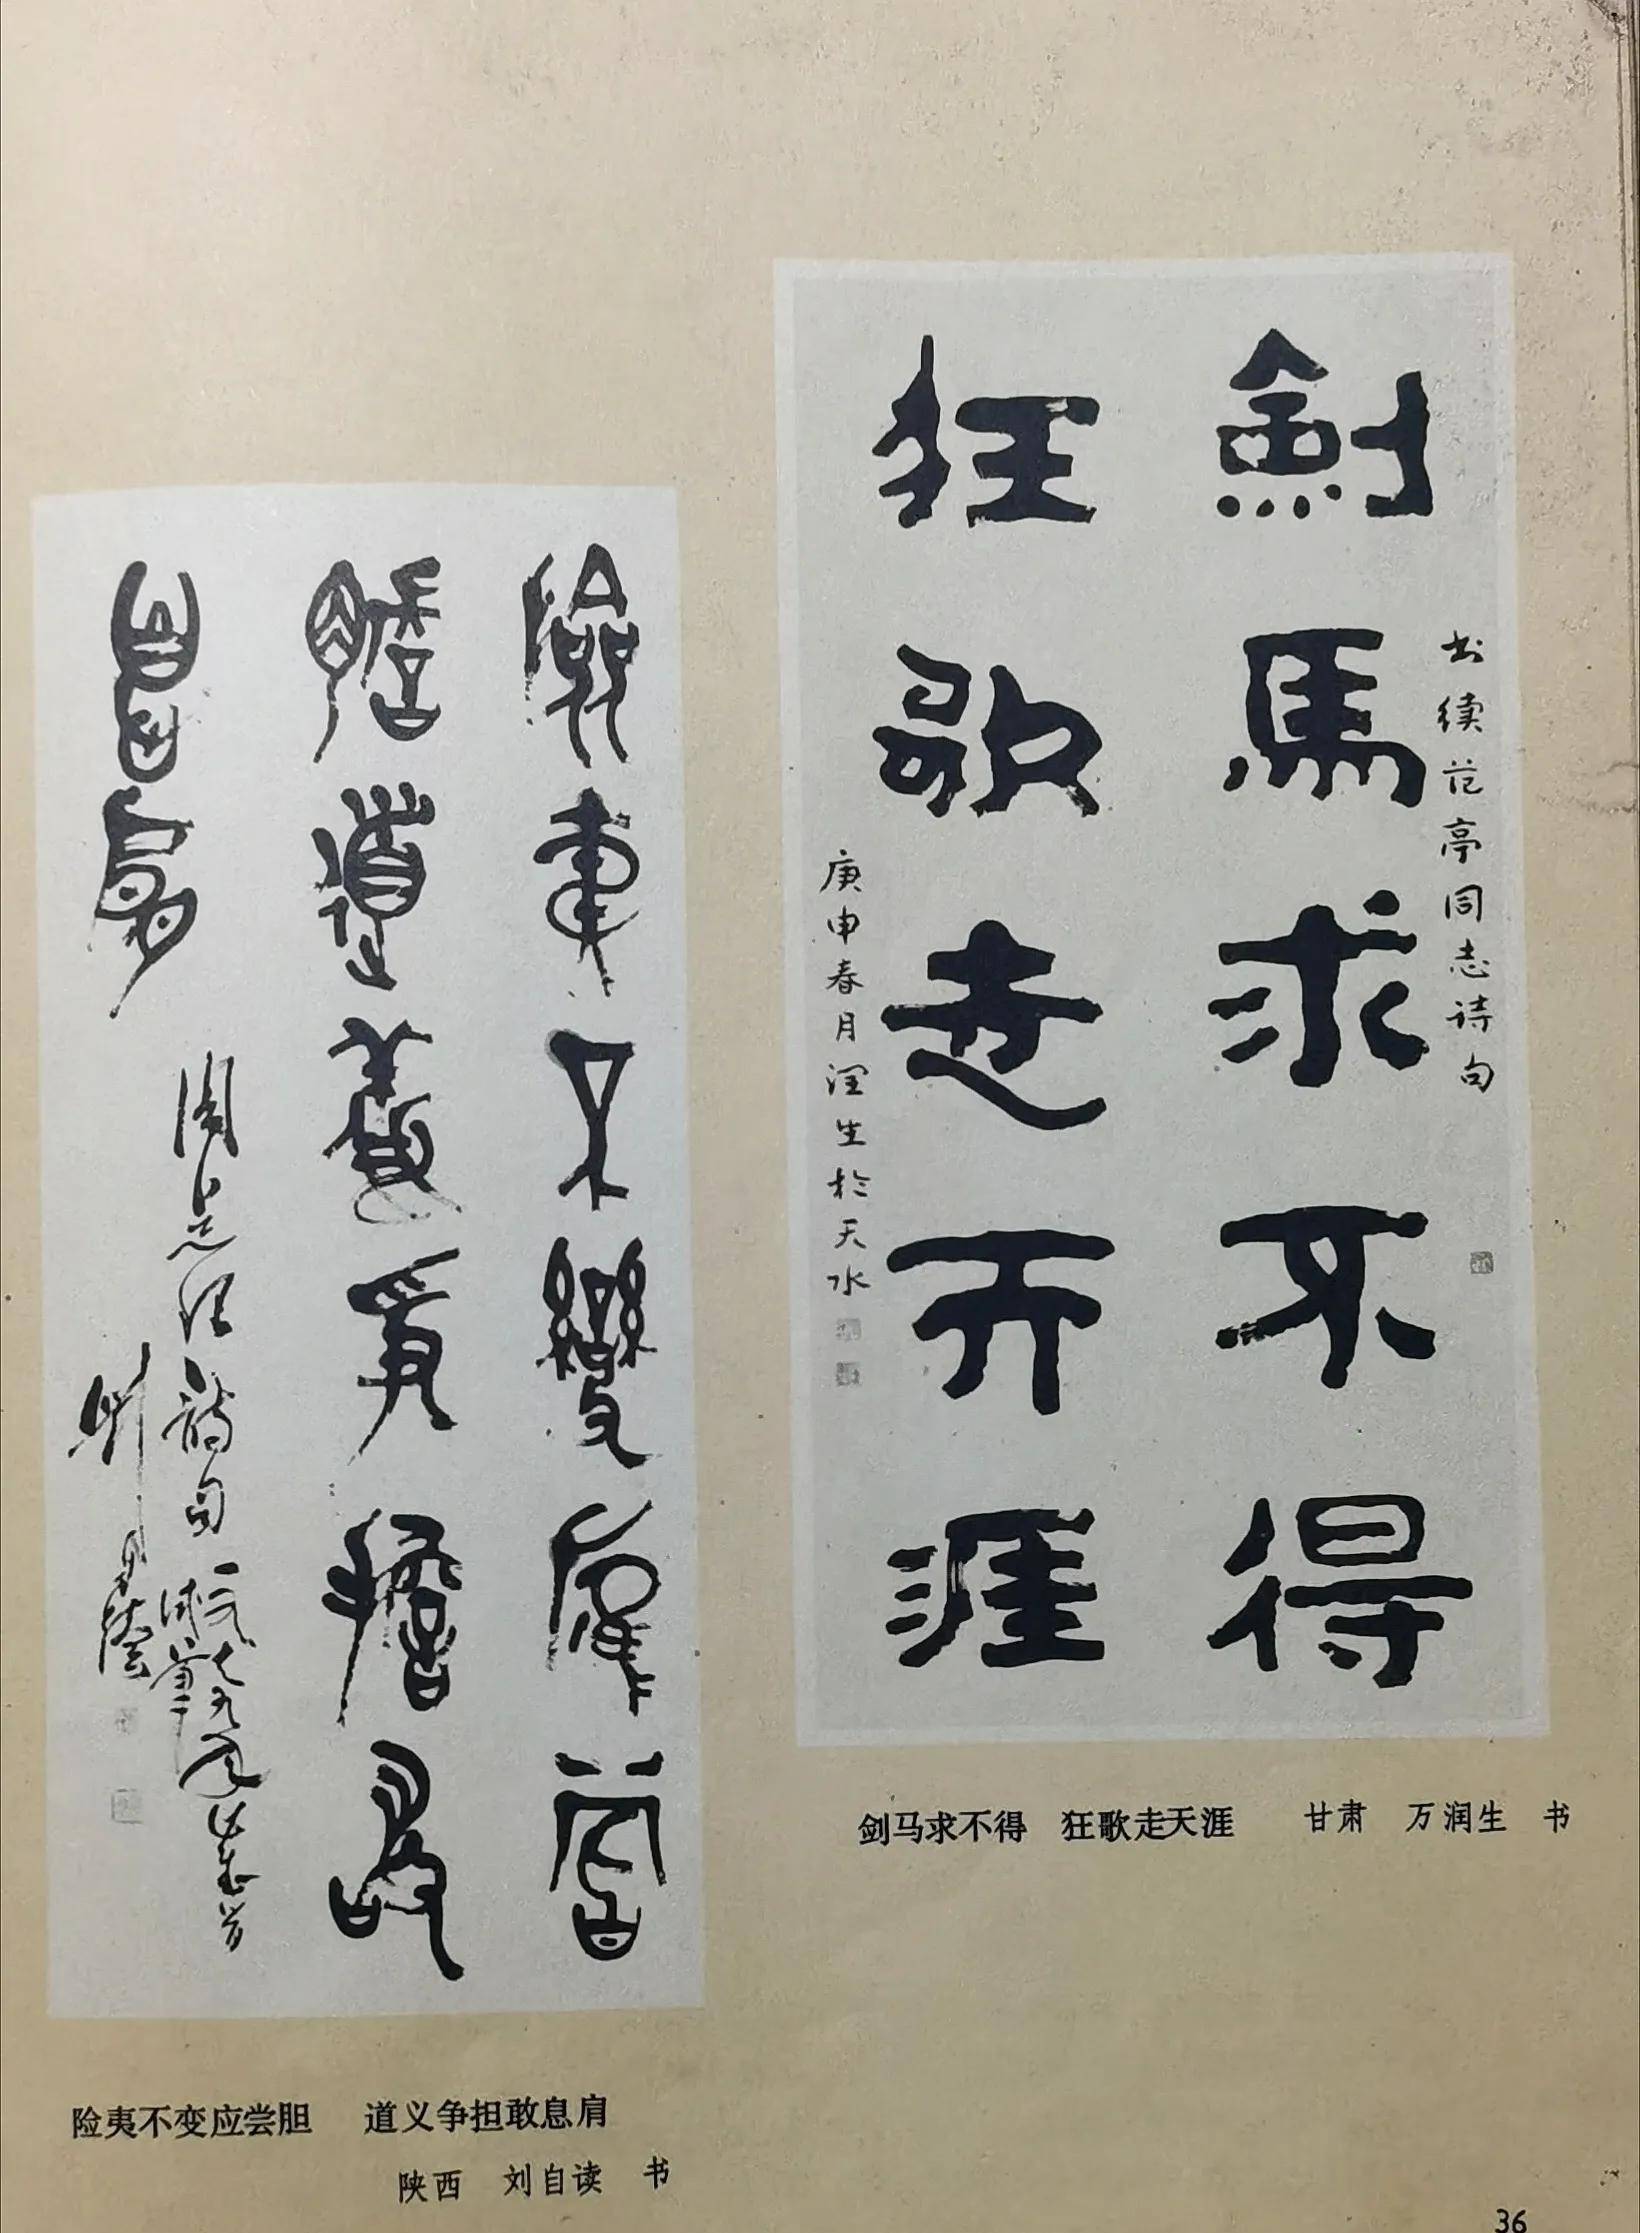 書续范亭同志诗句
劍馬求不得
狂歌走天涯
庚申春月润生於天水
剑马求不得 狂歌走天涯 甘肃 万润生 书
險夷不變應嘗
膽道義爭擔敢
息肩
周总理詩句
一九七九年
刘自讀
险夷不变应尝胆 道义争担敢息肩
陕西 刘自读 书
36